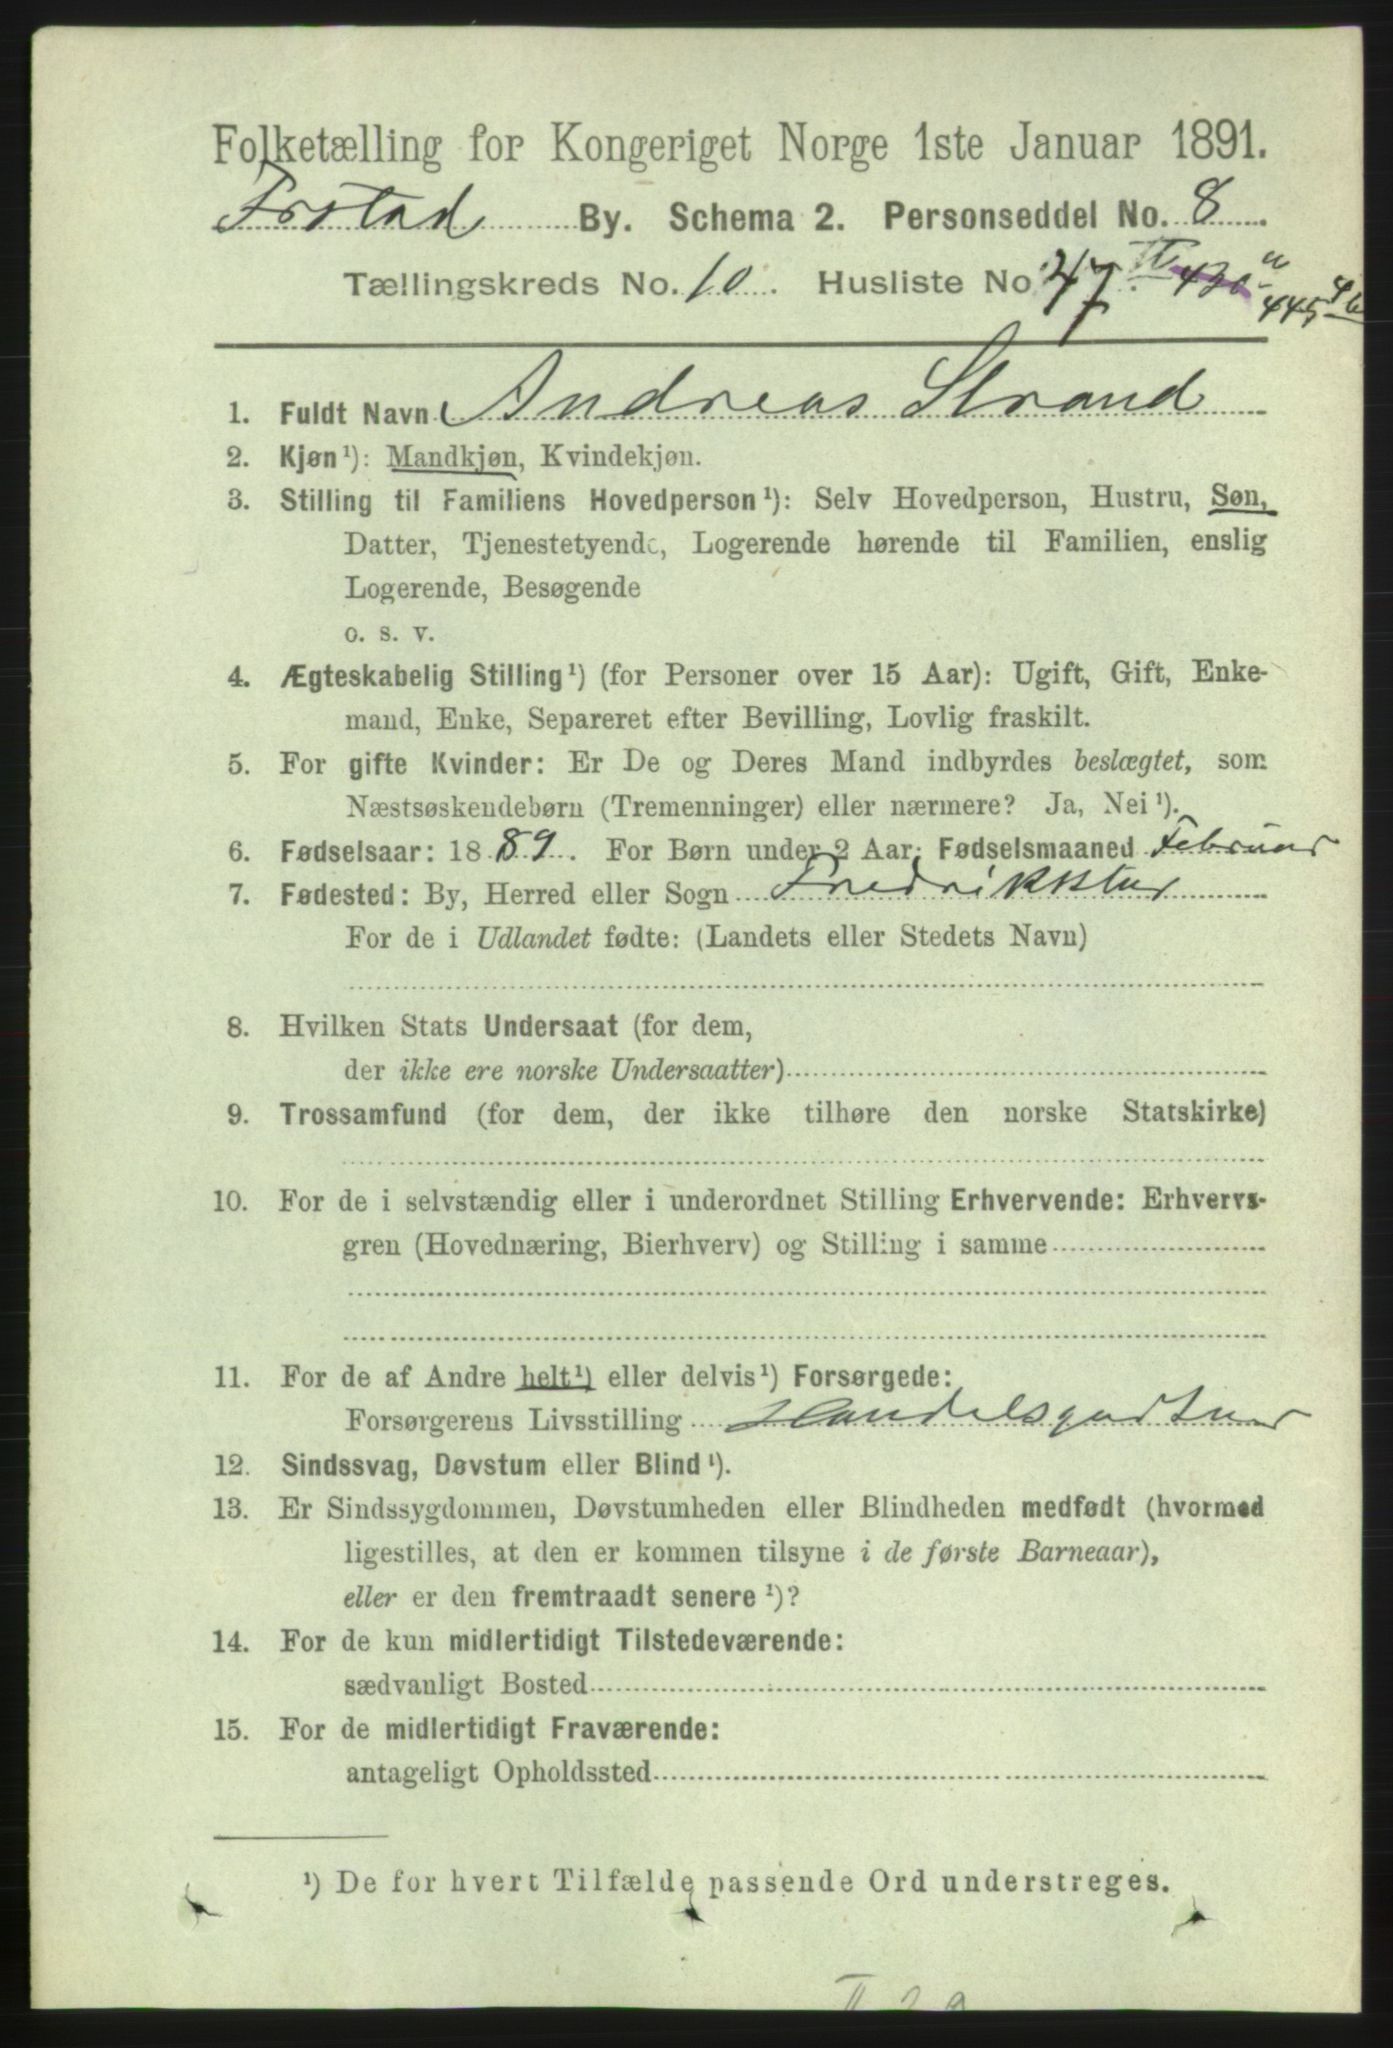 Folketælling for Kongeriget Norge 1ste Januar 1891.
Frstad By. Schema 2. Personseddel No. 8.
Tællingskreds No. 10. Husliste No 47. II 420 " 445
1. Fuldt Navn Andreas Strand
2. Kjøn ¹): Mandkjøn, Kvindekjøn.
3. Stilling til Familiens Hovedperson ¹): Selv Hovedperson, Hustru, Søn,
Datter, Tjenestetyende, Logerende hørende til Familien, enslig
Logerende, Besøgende
o. s. v.
4. Ægteskabelig Stilling ¹) (for Personer over 15 Aar): Ugift, Gift, Enke-
mand, Enke, Separeret efter Bevilling, Lovlig fraskilt.
5. For gifte Kvinder: Er De og Deres Mand indbyrdes beslægtet, som
Næstsøskendebørn (Tremenninger) eller nærmere? Ja, Nei ¹).
6. Fødselsaar: 1889. For Børn under 2 Aar: Fødselsmaaned Februar
7. Fødested: By, Herred eller Sogn Fredrikstad
For de i Udlandet fødte: (Landets eller Stedets Navn)
8. Hvilken Stats Undersaat (for dem,
der ikke ere norske Undersaatter)
9. Trossamfund (for dem, der ikke tilhøre den norske Statskirke)
10. For de i selvstændig eller i underordnet Stilling Erhvervende: Erhvervs-
gren (Hovednæring, Bierhverv) og Stilling i samme
11. For de af Andre helt ¹) eller delvis ¹) Forsørgede:
Forsørgerens Livsstilling Handelsgartner
12. Sindssvag, Døvstum eller Blind ¹).
13. Er Sindssygdommen, Døvstumheden eller Blindheden medfødt (hvormed
ligestilles, at den er kommen tilsyne i de første Barneaar),
eller er den fremtraadt senere ¹)?
14. For de kun midlertidigt Tilstedeværende:
sædvanligt Bosted
15. For de midlertidigt Fraværende:
antageligt Opholdssted
¹) De for hvert Tilfælde passende Ord understreges.